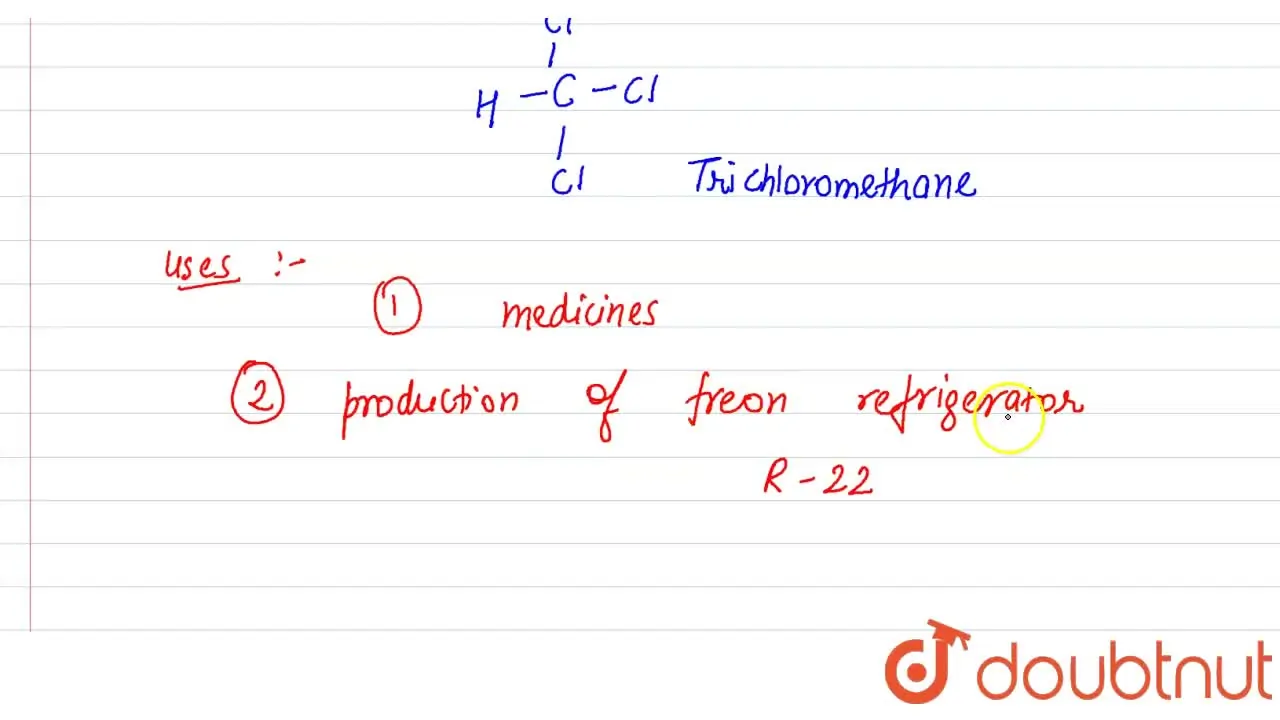 Cl
H - C - Cl
Cl Trichloromethane
uses :-
1 medicines
2 production of freon refrigerator
R - 22
doubtnut